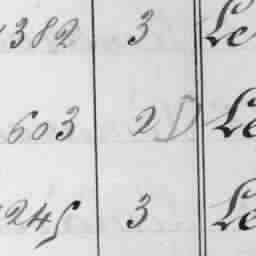 382 3 Le
603 2 D Le
245 3 Le